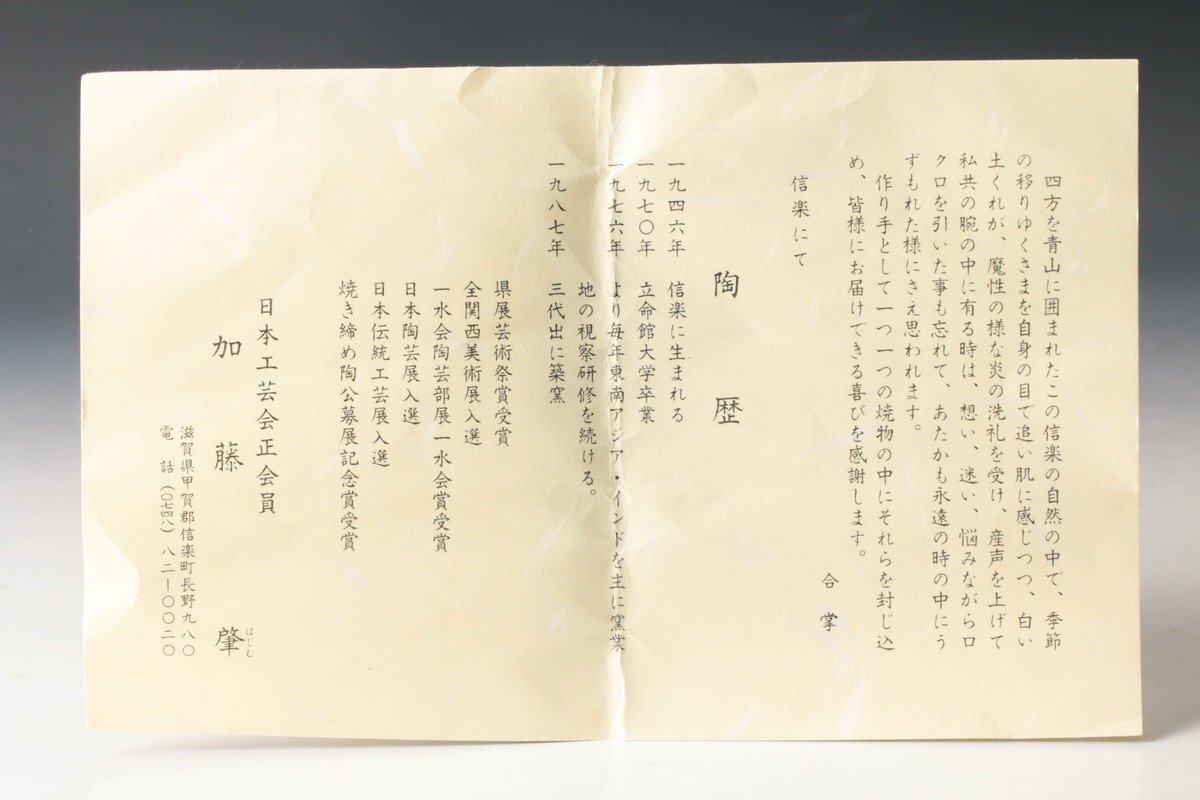 四方を青山に囲まれたこの信楽の自然の中で、季節
の移りゆくさまを自身の目で追い肌に感じつつ、白い
土くれが、魔性の様な炎の洗礼を受け、産声を上げて
私共の腕の中に有る時は、想い、迷い、悩みながらロ
クロを引いた事も忘れて、あたかも永遠の時の中にう
ずもれた様にさえ思われます。
作り手として一つ一つの焼物の中にそれらを封じ込
め、皆様にお届けできる喜びを感謝します。
合掌
信楽にて
陶歴
一九四六年 信楽に生まれる
一九七〇年 立命館大学卒業
一九七六年 より毎年東南アジア・インドを主に窯業
地の視察研修を続ける。
一九八七年 三代出に築窯
県展芸術祭賞受賞
全関西美術展入選
一水会陶芸部展一水会賞受賞
日本陶芸展入選
日本伝統工芸展入選
焼き締め陶公募展記念賞受賞
日本工芸会正会員
加藤肇
はじむ
滋賀県甲賀郡信楽町長野九八〇
電話(〇七四八)八二ー〇〇二〇